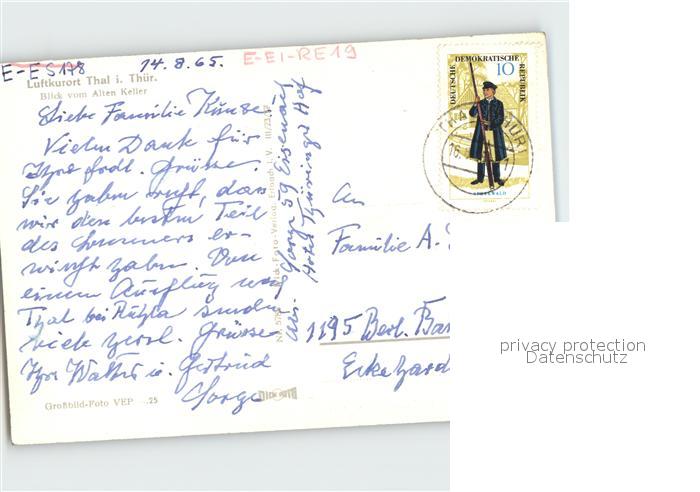 E-ES178
14.8.65.
E-EI-RE19
Luftkurort Thal i. Thür.
Blick vom Alten Keller
Liebe Familie Kunze
Vielen Dank für
Ihre frdl. Grüsse.
Sie haben recht, dass
wir den besten Teil
des Sommers er-
wischt haben. Von
einem Ausflug nach
Thal bei Ruhla senden
viele herzl. Grüsse
Ihre Walter u. Gertrud
Sorge
Großbild-Foto VEP 25
Abs. Sorge 59 Eisenach
Hotel Thüringer Hof
DEUTSCHE DEMOKRATISCHE REPUBLIK
10
SPREEWALD
THAL (THÜR)
An
Familie A.
1195 Berl. Bau
Eckehard
privacy protection
Datenschutz